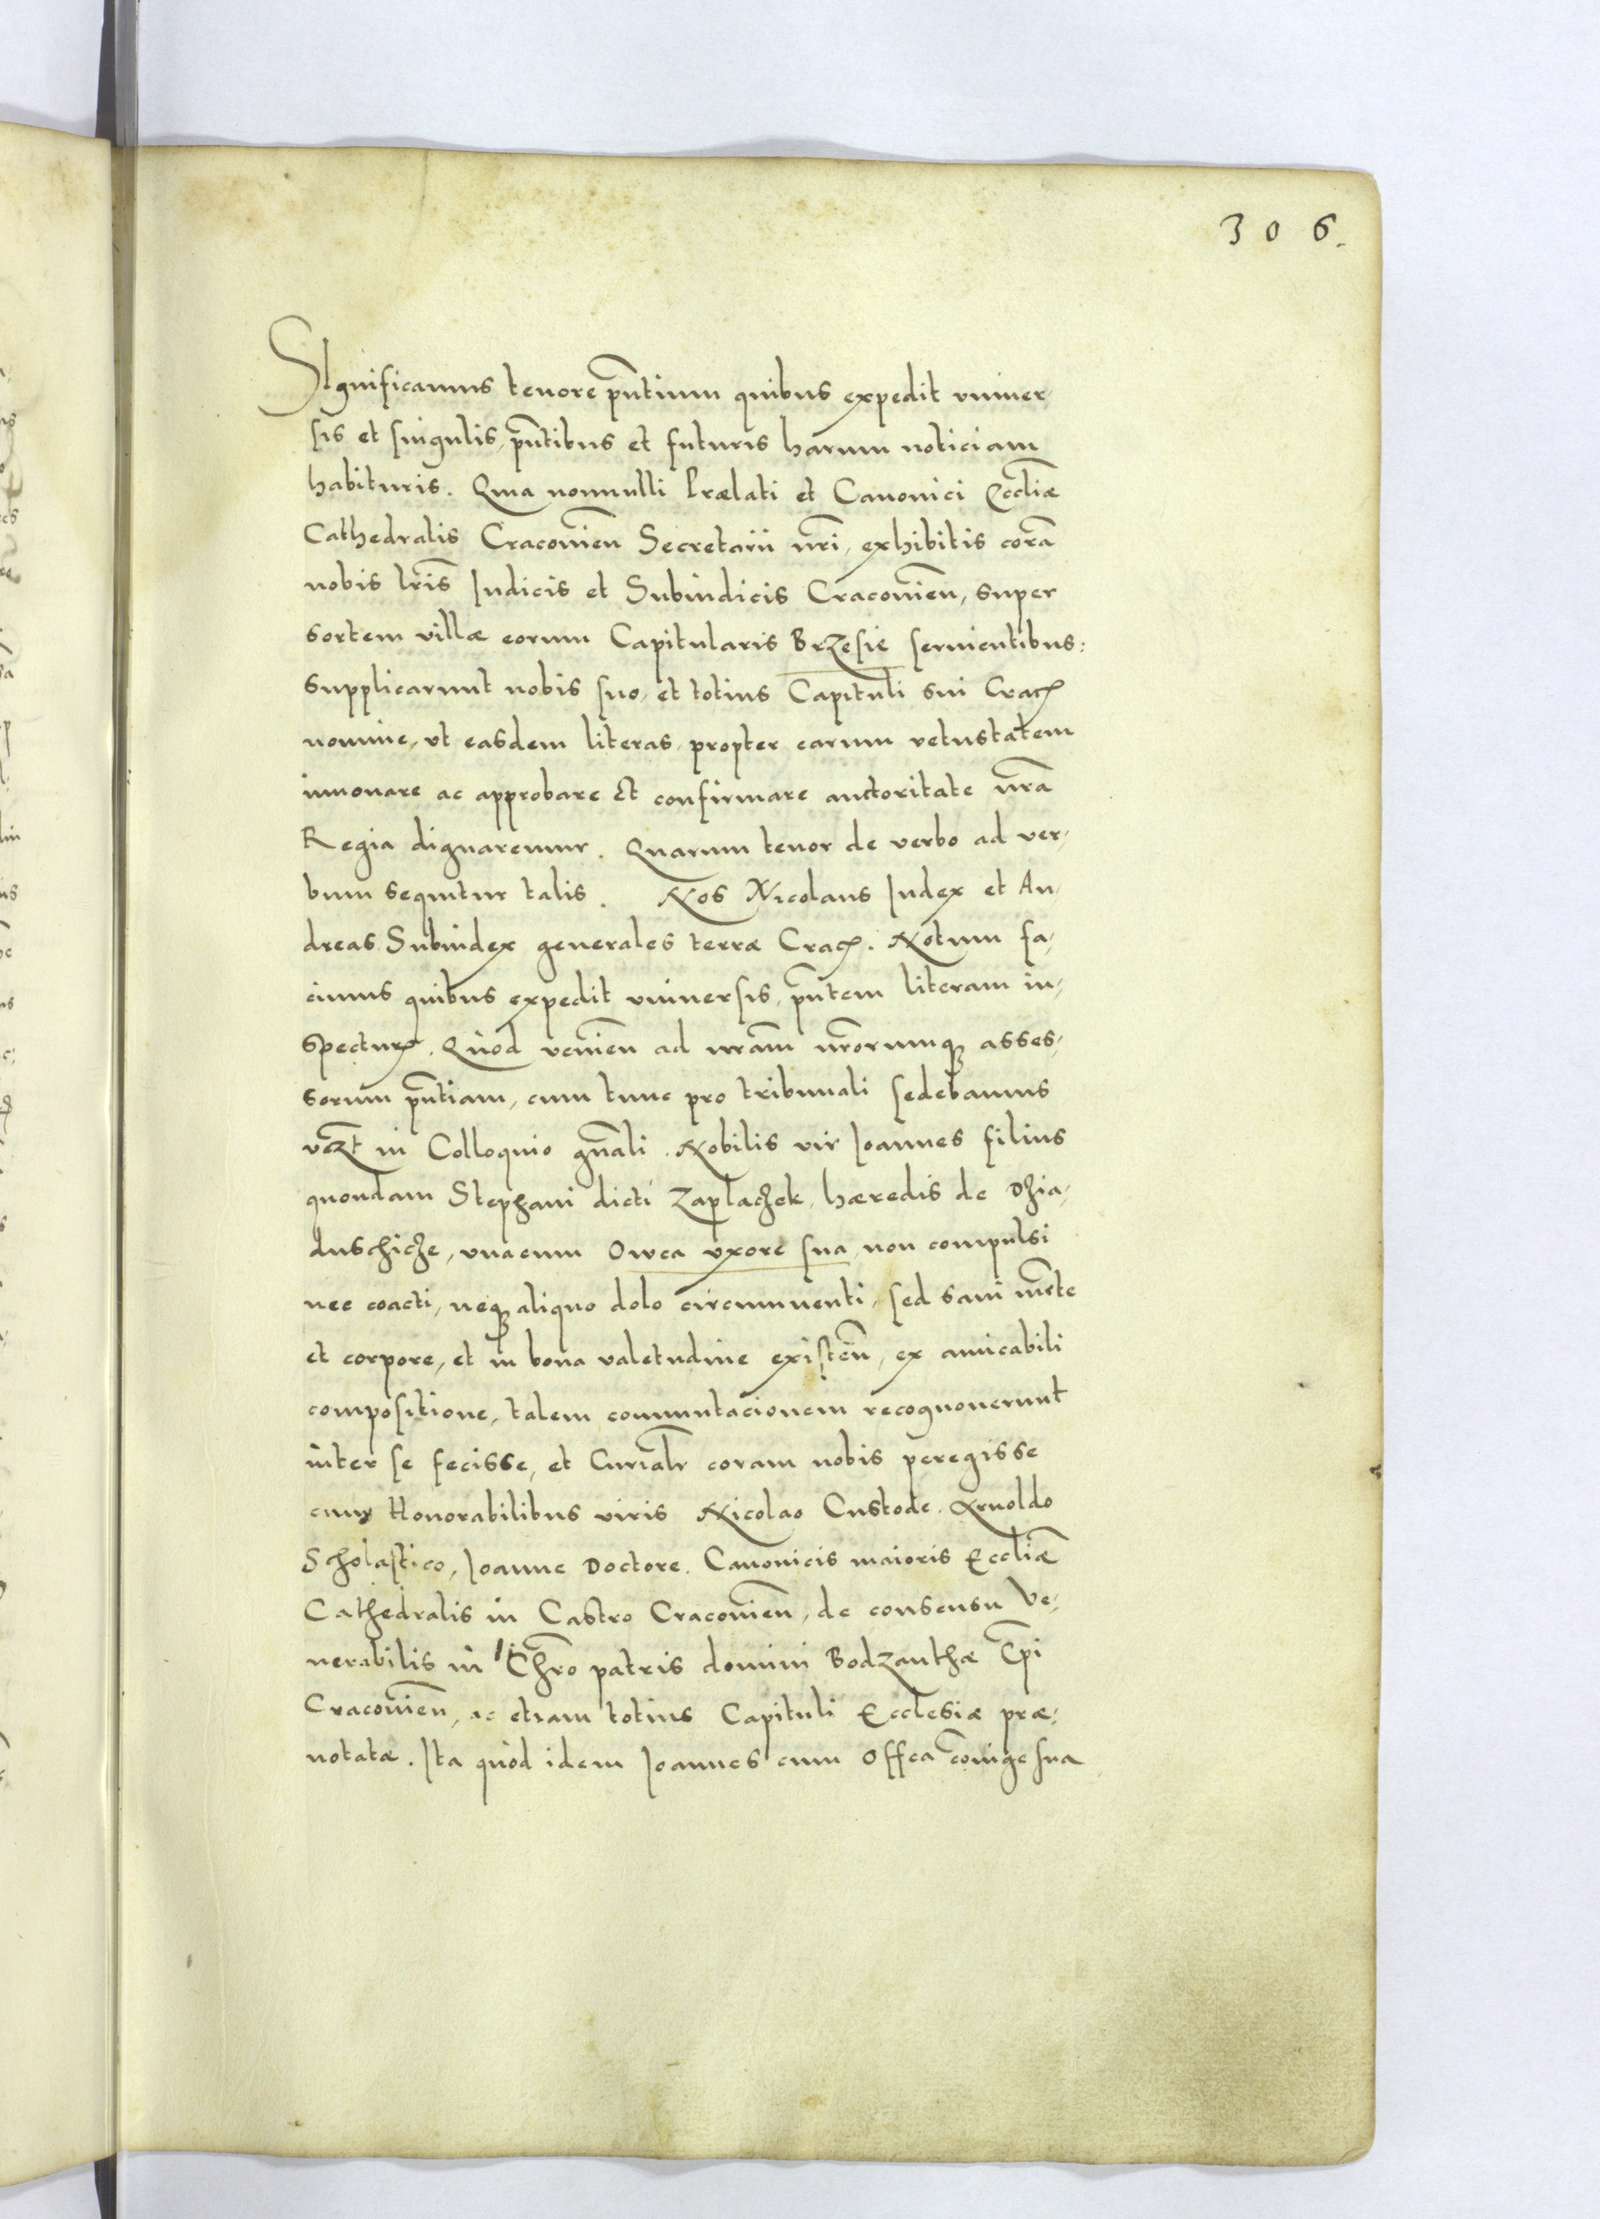 306.
SIgnificamus tenore pn̄tium quibus expedit vniuer-
sis et singulis, pn̄tibus et futuris harum noticiam
habituris. Quia nonnulli Prælati et Canonici Eccl̄iæ
Cathedralis Cracouien̄ Secretarii nr̄i, exhibitis corā
nobis lr̄is Iudicis et Subiudicis Cracouien̄, super
sortem villæ eorum Capitularis Brzesie seruientibus:
Supplicarunt nobis suo, et totius Capituli sui Crac̄
nomine, vt easdem literas, propter earum vetustatem
innouare ac approbare et confirmare auctoritate nr̄a
Regia dignaremur. Quarum tenor de verbo ad ver-
bum sequitur talis. Nos Nicolaus Iudex et An-
dreas Subiudex generales terræ Crac̄. Notum fa-
cimus quibus expedit vniuersis, pn̄tem literam in-
specturꝭ. Quòd venien̄ ad nr̄am nr̄orumqꝫ asses-
sorum pn̄tiam, cum tunc pro tribunali sedebamus
vczt̄ in Colloquio gn̄ali. Nobilis vir Ioannes filius
quondam Stephani dicti Zaplaczek, hæredis de Dzia-
duschicze, vnacum Owca vxore sua, non compulsi
nec coacti, neqꝫ aliquo dolo circumuenti, sed sani mēte
et corpore, et in bona valetudine existen̄, ex amicabili
compositione, talem commutacionem recognouerunt
inter se fecisse, et Curialr̄ coram nobis peregisse
cum Honorabilibus viris Nicolao Custode. Arnoldo
Scholastico, Ioanne Doctore. Canonicis maioris Eccl̄iæ
Cathedralis in Castro Cracouien̄, de consensu Ve-
nerabilis in Chr̄o patris domini Bodzanthæ Ep̄i
Cracouien̄, ac etiam totius Capituli Ecclesiæ præ-
notatæ. Ita quòd idem Ioannes cum Offca cōiuge sua